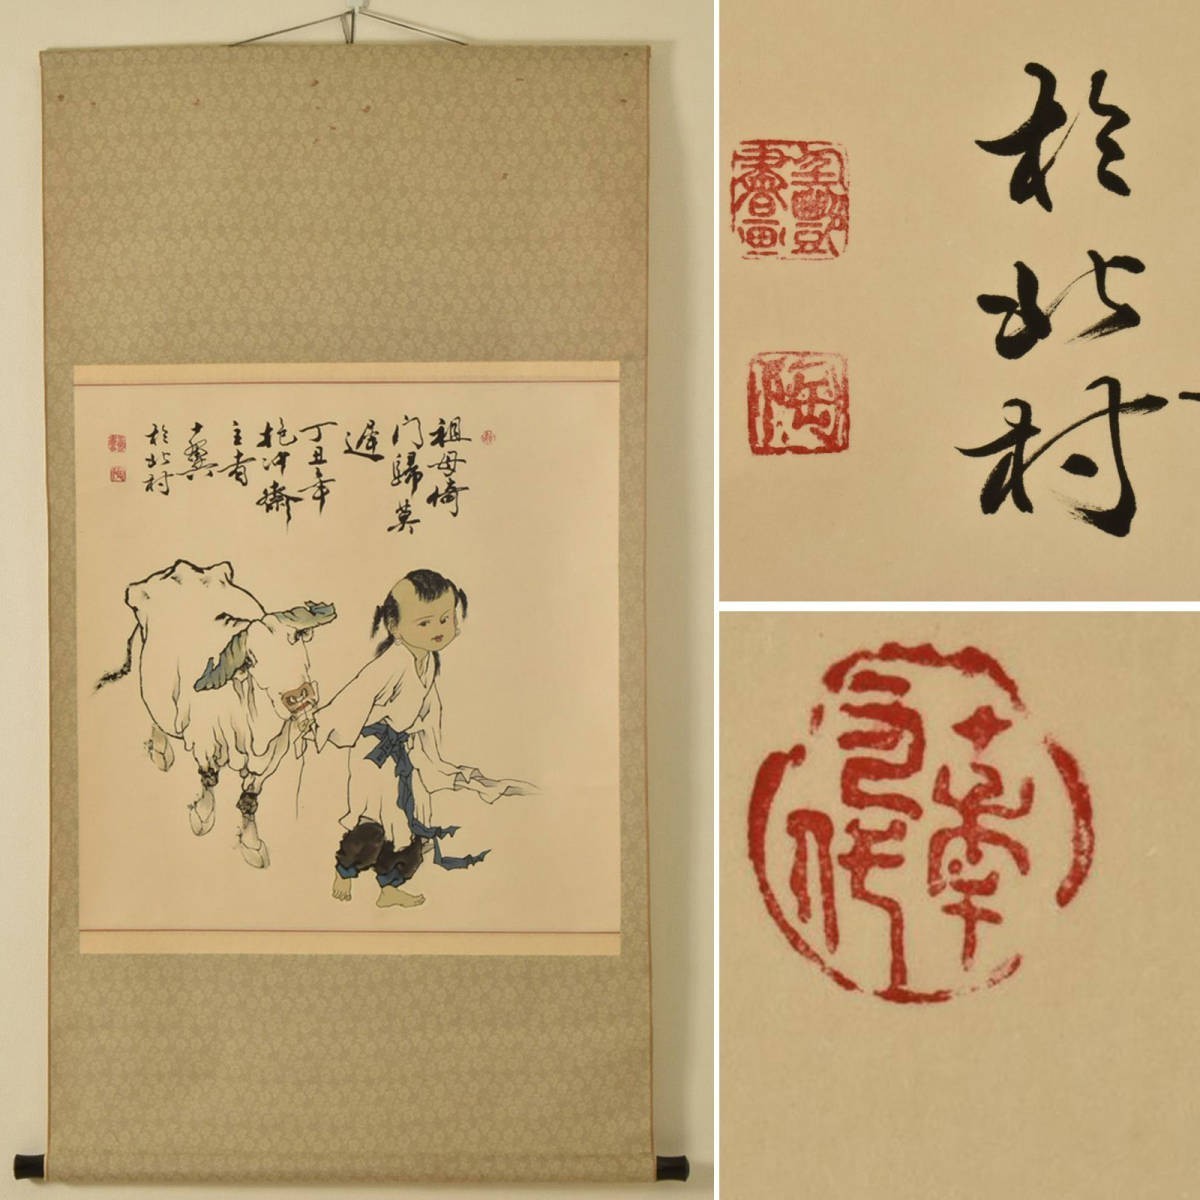 祖母倚
门歸莫
遲
丁丑年
抱冲齋
主者
十翼
於北村
於北村
陶